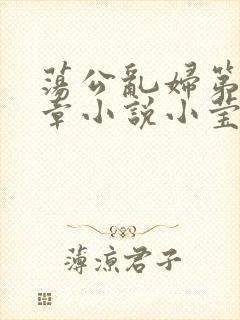 蕩公亂婦第
章小說小莹
薄涼君子